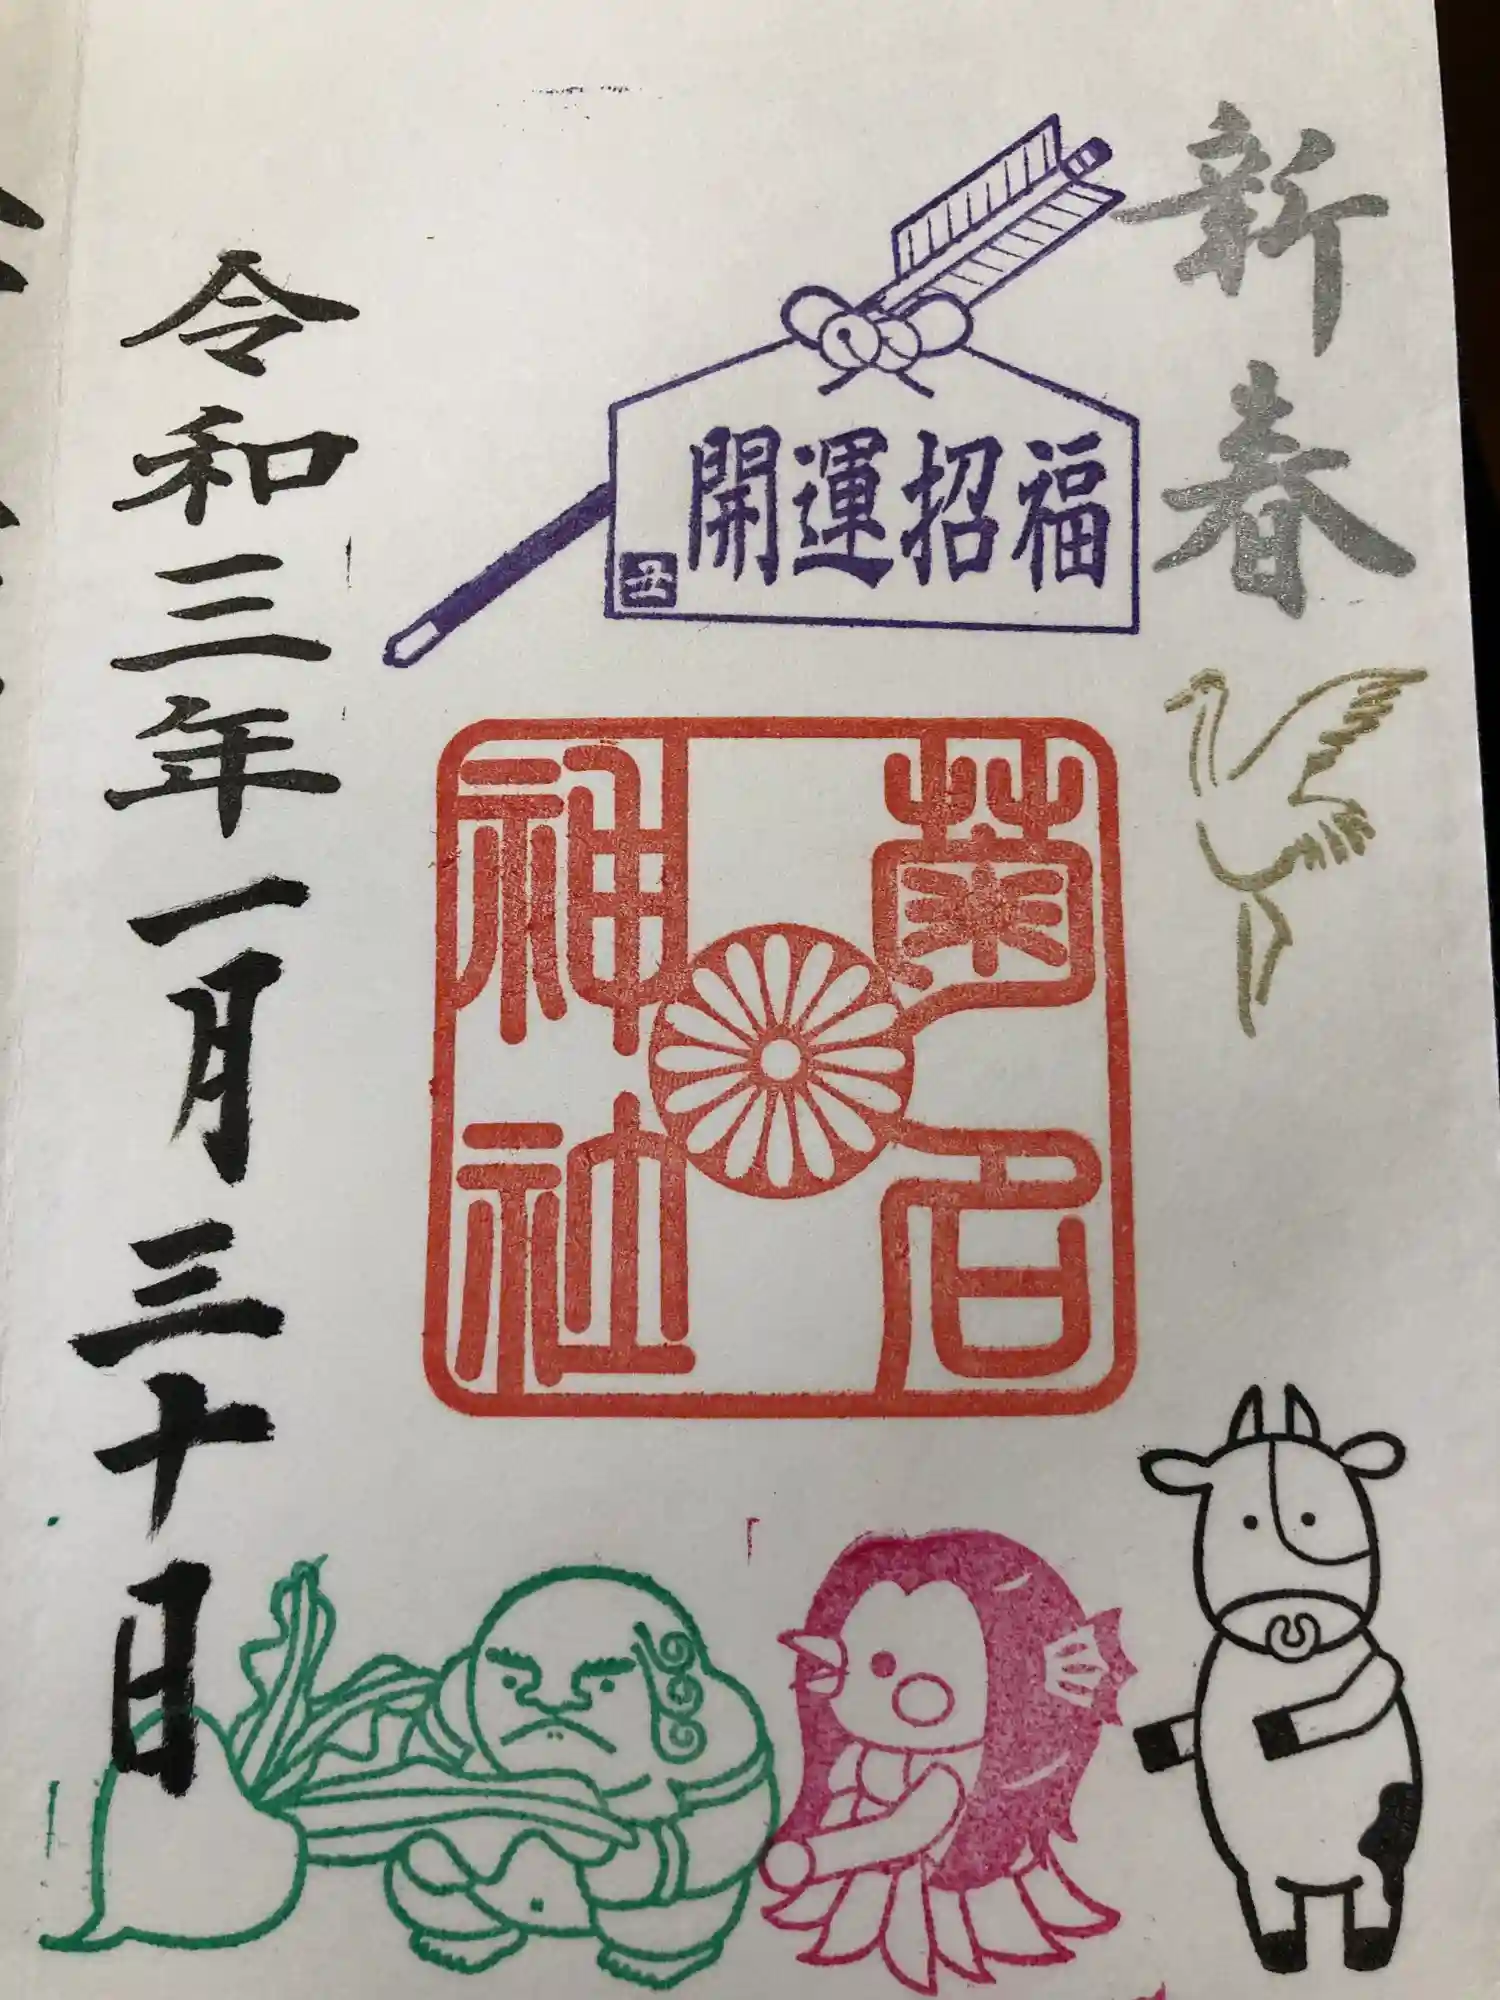 新春
開運招福
丑
菊名
神社
令和三年一月三十日